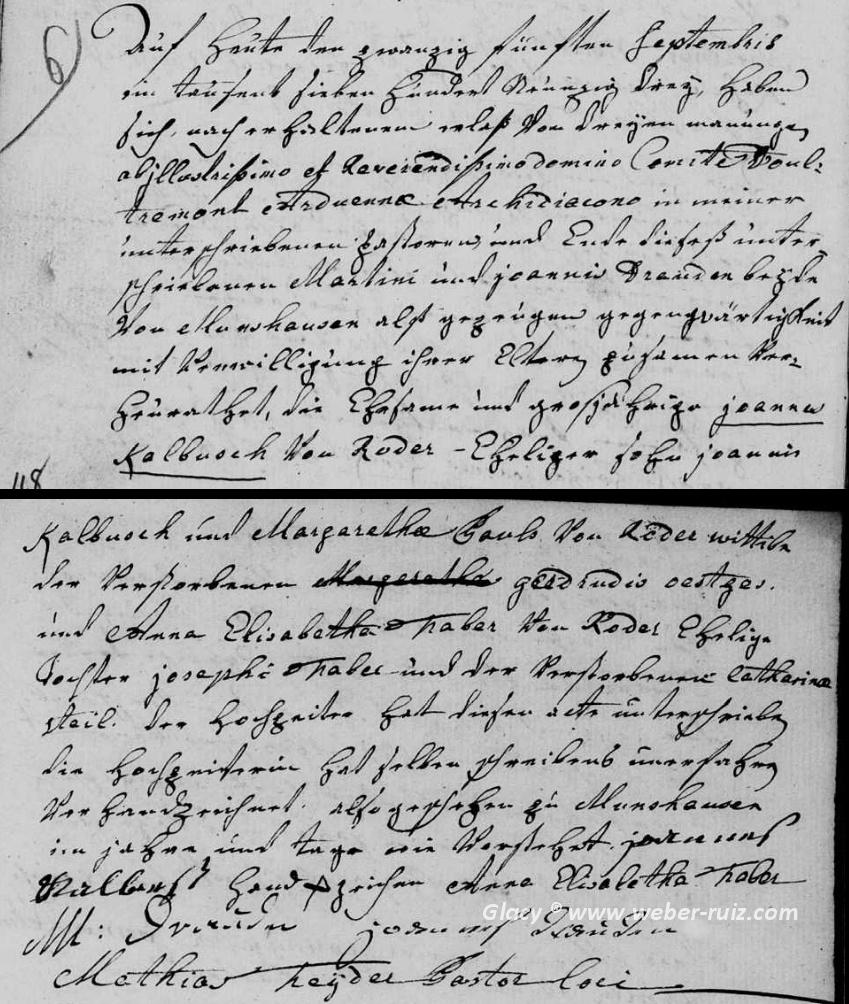 6
Auf Heute den zwanzig fünften Septembris
ein tausent sieben hundert Neunzig drey, haben
sich, nach erhaltenem erlaß Von dreyen
ab jllustrissimo et Reverendissimo domino Comite Woul-
tremont Arduennæ Archidiacono in meiner
unterschriebenen pastoren und Ende dieses unter
schriebenen Martini und joannis Drauden beyde
Von Munshausen alß gezeugen gegengwärtigkeit
mit Verwilligung ihrer Eltern zusamen Ver-
heurathet, die Ehesame und großjährige joannes
Kalbusch Von Roder - Eheliger sohn joannis
118
Kalbusch und Margarethæ Pauls Von Röder wittiber
der Verstorbenen Margaretha gerdrudis oestges.
und Anna Elisabetha Faber Von Roder Ehelige
Tochter josephi Faber und der Verstorbenen Catharinæ
steil. der hochzeiter hat diesen acte unterschrieben
die hochzeiterin hat selben schreibens unerfahren
Verhandzeichnet. also geschehen zu Munshausen
im jahre und tage wie Vorstehet. joannes
Kalbusch hand + zeichen Anna Elisabetha Faber
M: Drauden joannes Drauden
Mathias heyder Pastor loci
Glacy © www.weber-ruiz.com